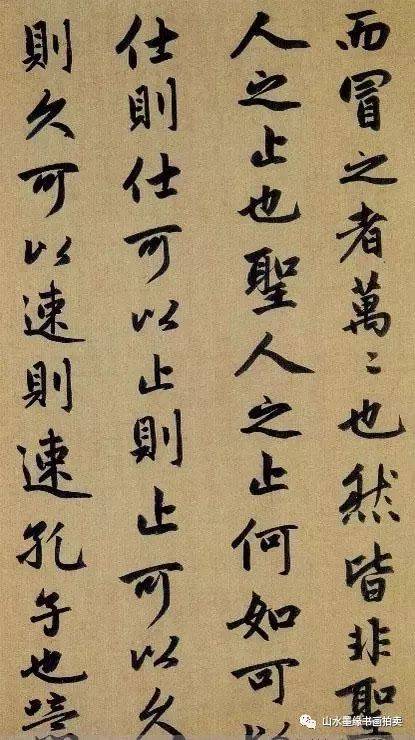 而冒之者萬〻也然皆非聖
人之止也聖人之止何如可以
仕則仕可以止則止可以久
則久可以速則速孔子也噫
山水墨缘书画拍卖